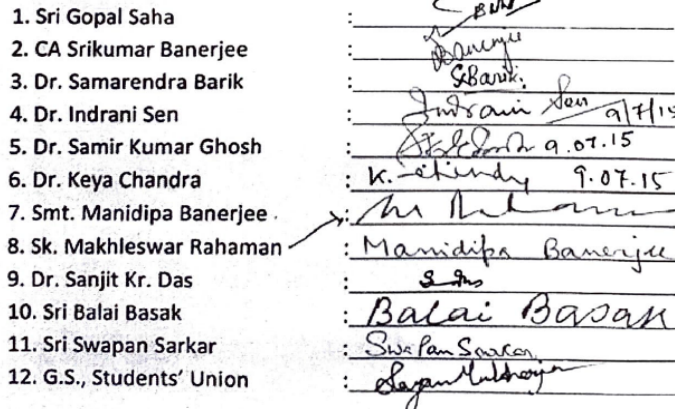 1. Sri Gopal Saha :
2. CA Srikumar Banerjee : Banerjee
3. Dr. Samarendra Barik : SBarik.
4. Dr. Indrani Sen : Indrani Sen 9/7/15
5. Dr. Samir Kumar Ghosh : 9.07.15
6. Dr. Keya Chandra : K. 9.07.15
7. Smt. Manidipa Banerjee :
8. Sk. Makhleswar Rahaman : Manidipa Banerjee
9. Dr. Sanjit Kr. Das :
10. Sri Balai Basak : Balai Basak
11. Sri Swapan Sarkar : Swapan Sarkar
12. G.S., Students' Union : Sayan Mukherjee